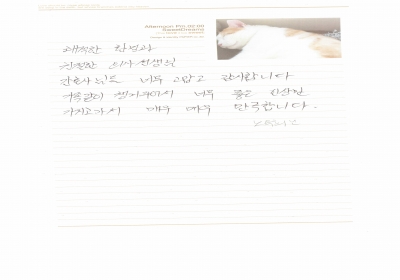 Afternoon Pm 02:00
SweetDreams
쾌적한 환경과
친절한 의사선생님
간호사님도 너무 고맙고 감사합니다
가족같이 챙겨주셔서 너무
가지고가서 매우 매우 만족합니다.